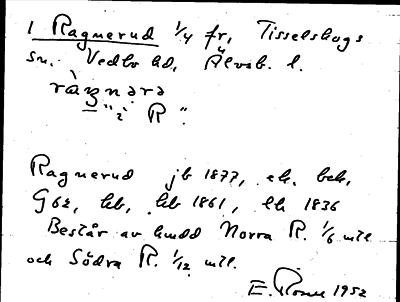 1 Ragnerud 1/4 fr, Tisselskogs
sn. Vedbo hd, Älvsb. l.
ràgnərə
"i R".
Ragnerud jb 1877, ek. bek,
G 62, hb, hb 1861, lk 1836
Består av hmdd Norra R. 1/6 mtl
och Södra R. 1/12 mtl.
E. 1952